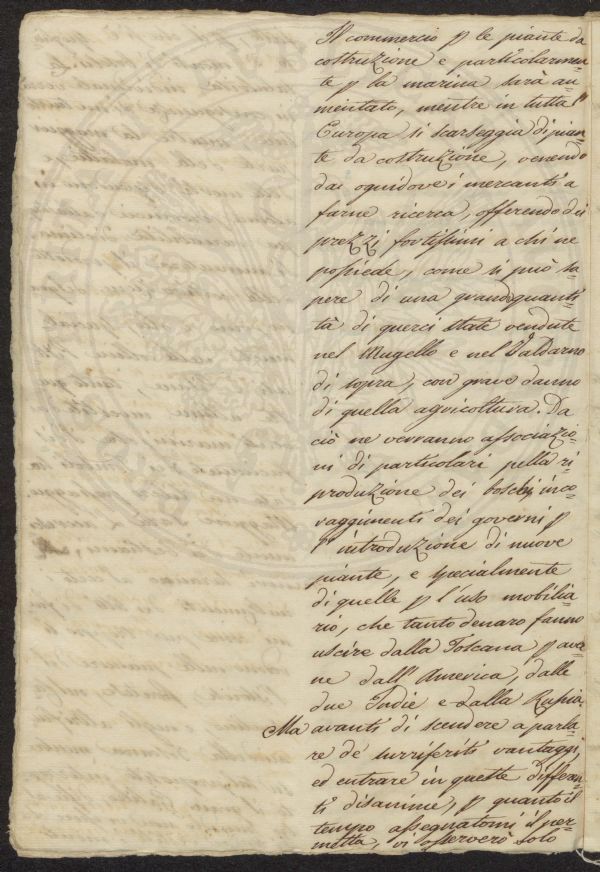 Il commercio p le piante da
costruzione e particolarmen=
te p la marina sarà au=
mentato, mentre in tutta l'
Europa si scarseggia di pian=
te da costruzione, venendo
da ognidove i mercanti a
farne ricerca, offerendo dei
prezzi fortissimi a chi ne
possiede, come si può sa=
pere di una grande quanti=
tà di querci state vendute
nel Mugello e nel Valdarno
di sopra, con grave danno
di quella agricoltura. Da
ciò ne verranno associazio=
ni di particolari pella ri=
produzione dei boschi, inco=
raggimenti dei governi p
l'introduzione di nuove
piante, e specialmente
di quelle p l'uso mobilia=
rio, che tanto denaro fanno
uscire dalla Toscana p aver=
ne dall'America, dalle
due Indie e dalla Russia.
Ma avanti di scendere a parla=
re de' surriferiti vantaggi,
ed entrare in queste differen=
ti disamine, p quanto il
tempo assegnatomi il per=
metta, vi osserverò solo